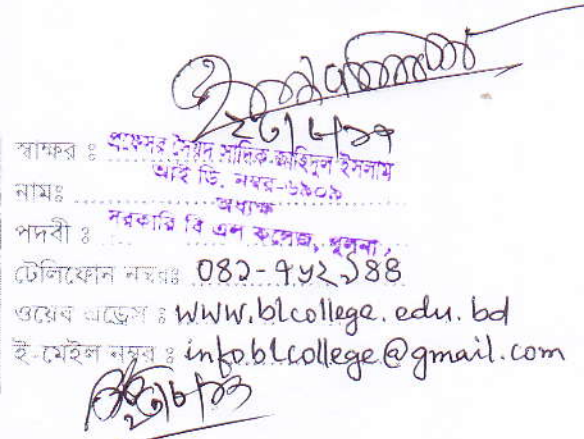 স্বাক্ষর ঃ প্রফেসর সৈয়দ সাদিক জাহিদুল ইসলাম
আই ডি. নম্বর-৬৯০৯
নামঃ
অধ্যক্ষ
পদবী ঃ সরকারি বি এল কলেজ, খুলনা,
টেলিফোন নম্বরঃ ০৪১-৭৬২১৪৪
ওয়েব এড্রেস ঃ www.blcollege.edu.bd
ই-মেইল নম্বর ঃ info.blcollege@gmail.com